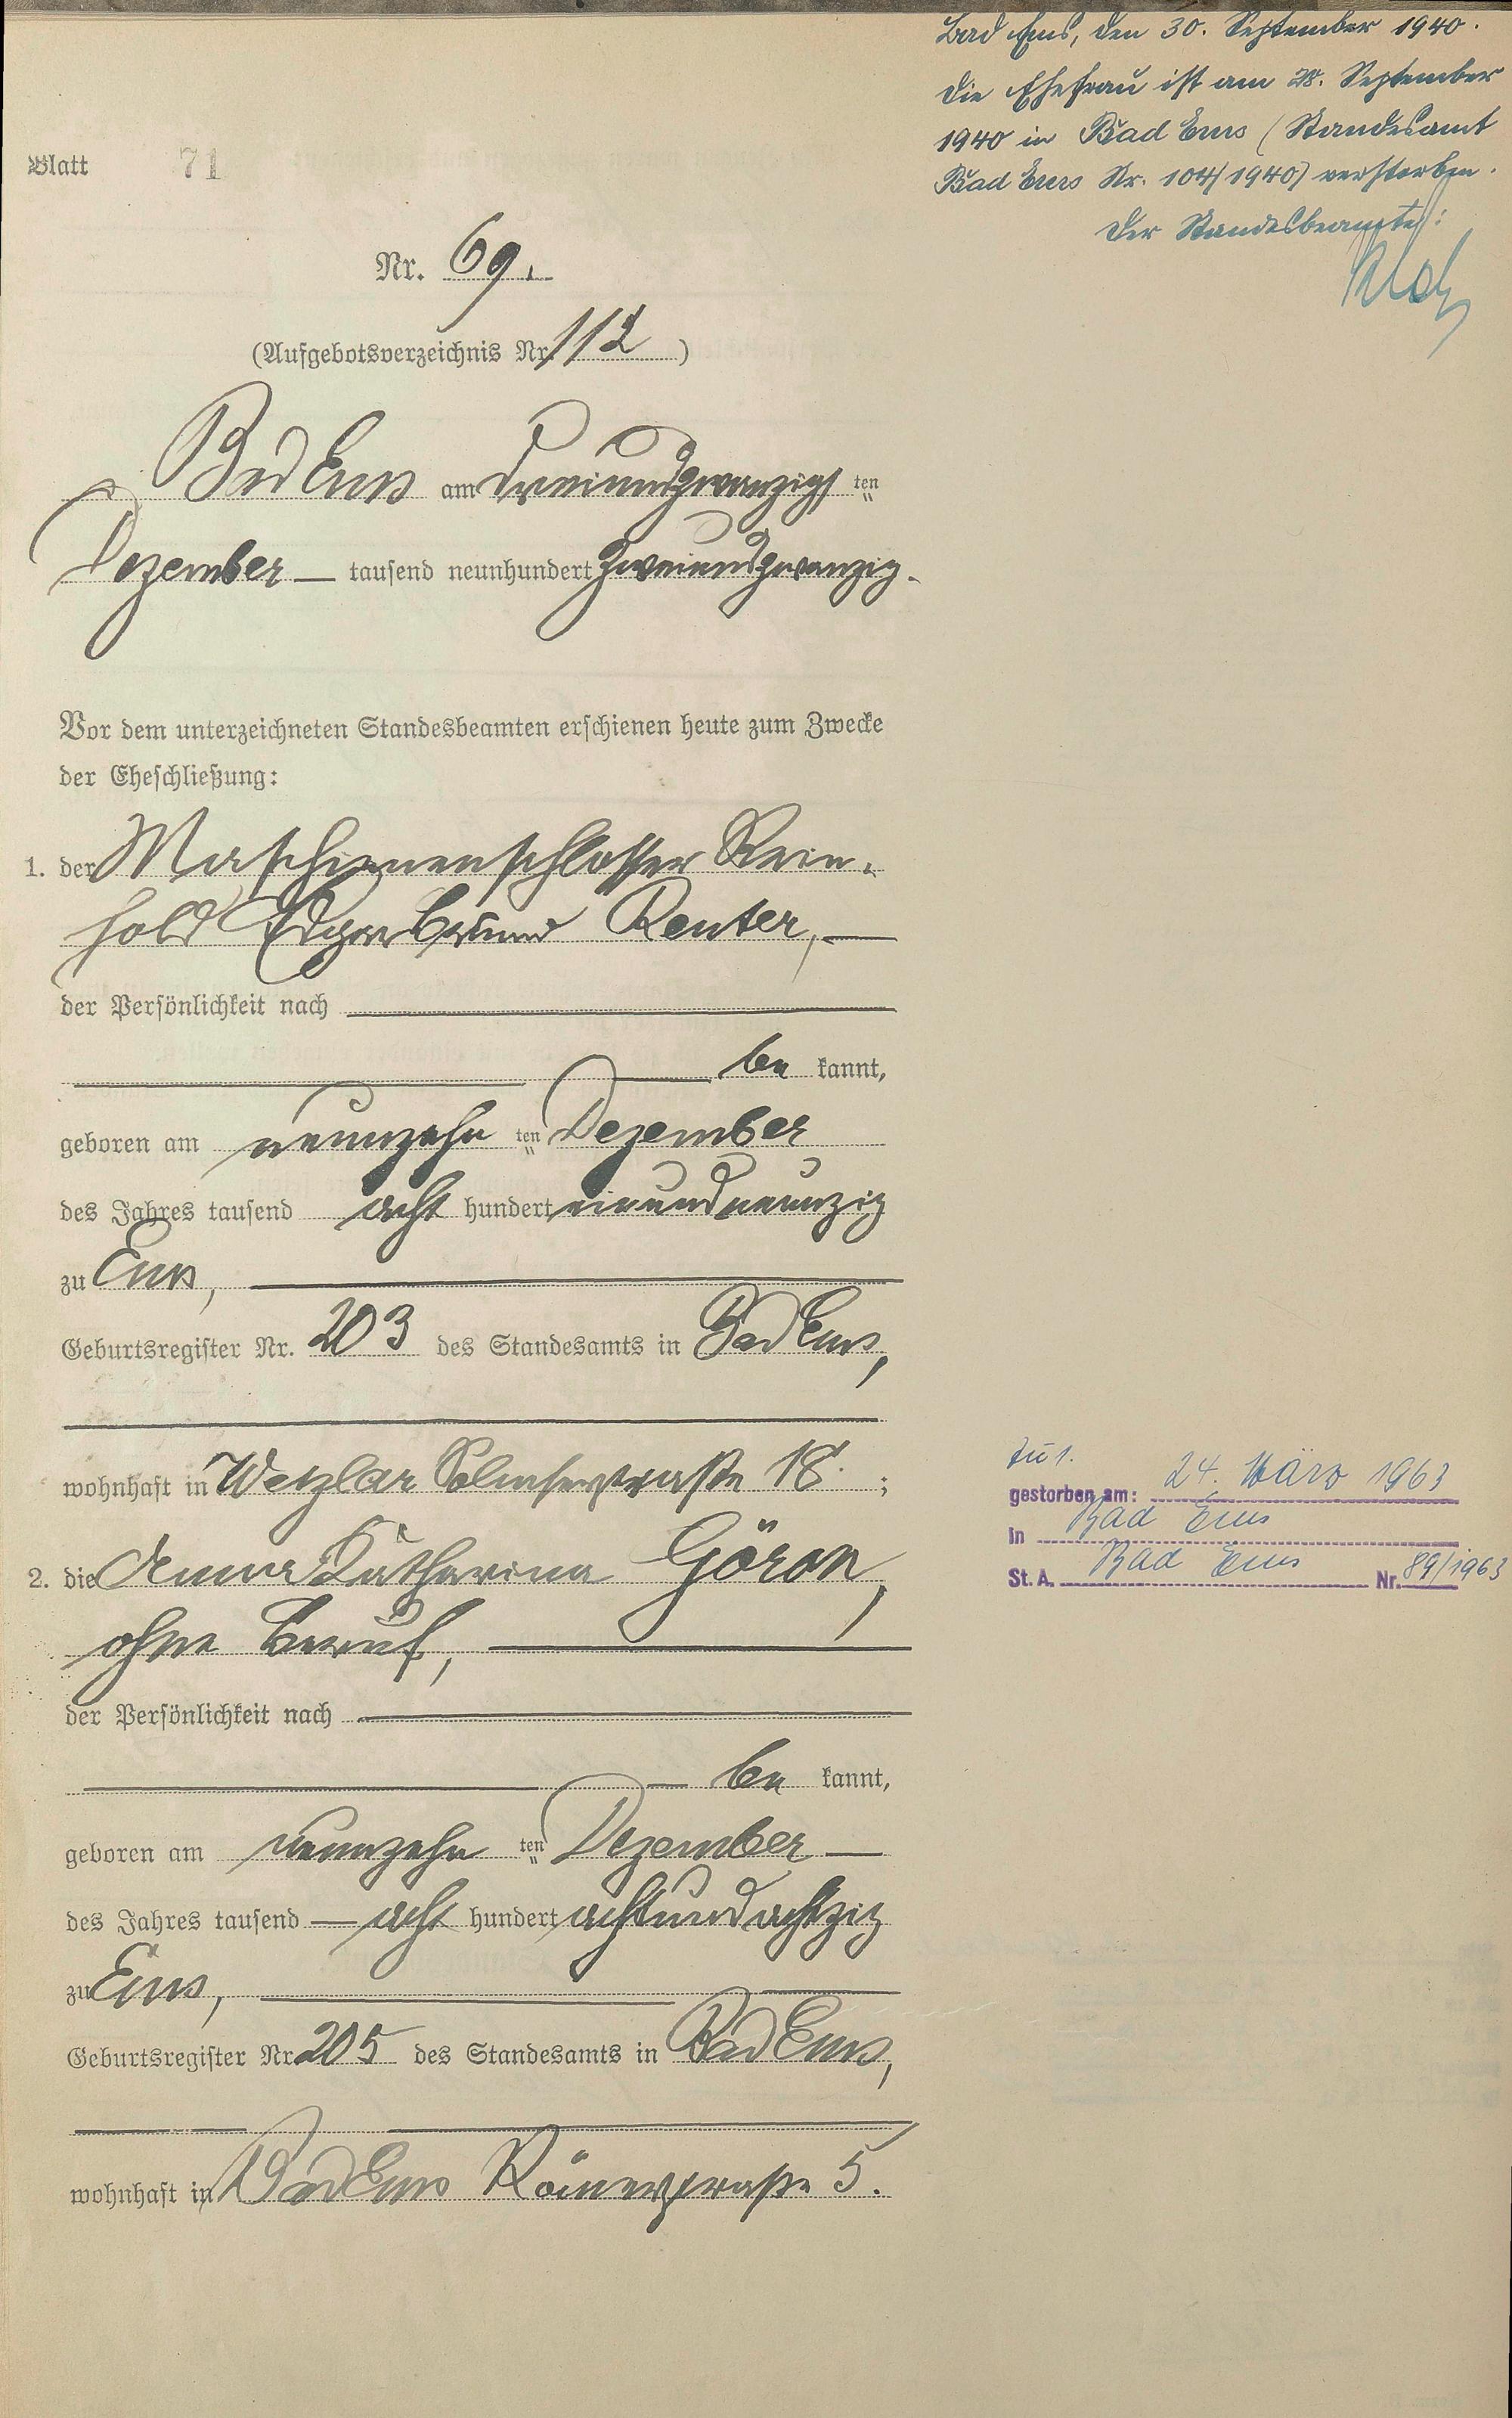 Bad Ems, den 30. September 1940.
Die Ehefrau ist am 28. September
1940 in Bad Ems (Standesamt
Bad Ems Nr. 104/1940) verstorben.
Der Standesbeamte:
Blatt 71
Nr. 69.
(Aufgebotsverzeichnis Nr. 112)
Bad Ems am dreiundzwanzigsten
Dezember — tausend neunhundert zweiundzwanzig.
Vor dem unterzeichneten Standesbeamten erschienen heute zum Zwecke
der Eheschließung:
1. der Maschinenschlosser Rein-
hold Edgar Bruno Reuter, —
der Persönlichkeit nach —
— be kannt,
geboren am neunzehn ten Dezember
des Jahres tausend acht hundert einundneunzig
zu Ems, —
Geburtsregister Nr. 203 des Standesamts in Bad Ems,
wohnhaft in Wetzlar Solmserstraße 18. ;
2. die Anna Katharina Göron,
ohne Beruf, —
der Persönlichkeit nach —
— be kannt,
geboren am neunzehn ten Dezember —
des Jahres tausend — acht hundert achtundachtzig
zu Ems, —
Geburtsregister Nr. 205 des Standesamts in Bad Ems,
wohnhaft in Bad Ems Römerstraße 5.
Zu 1.
gestorben am: 24. März 1963
in Bad Ems
St. A. Bad Ems Nr. 89/1963